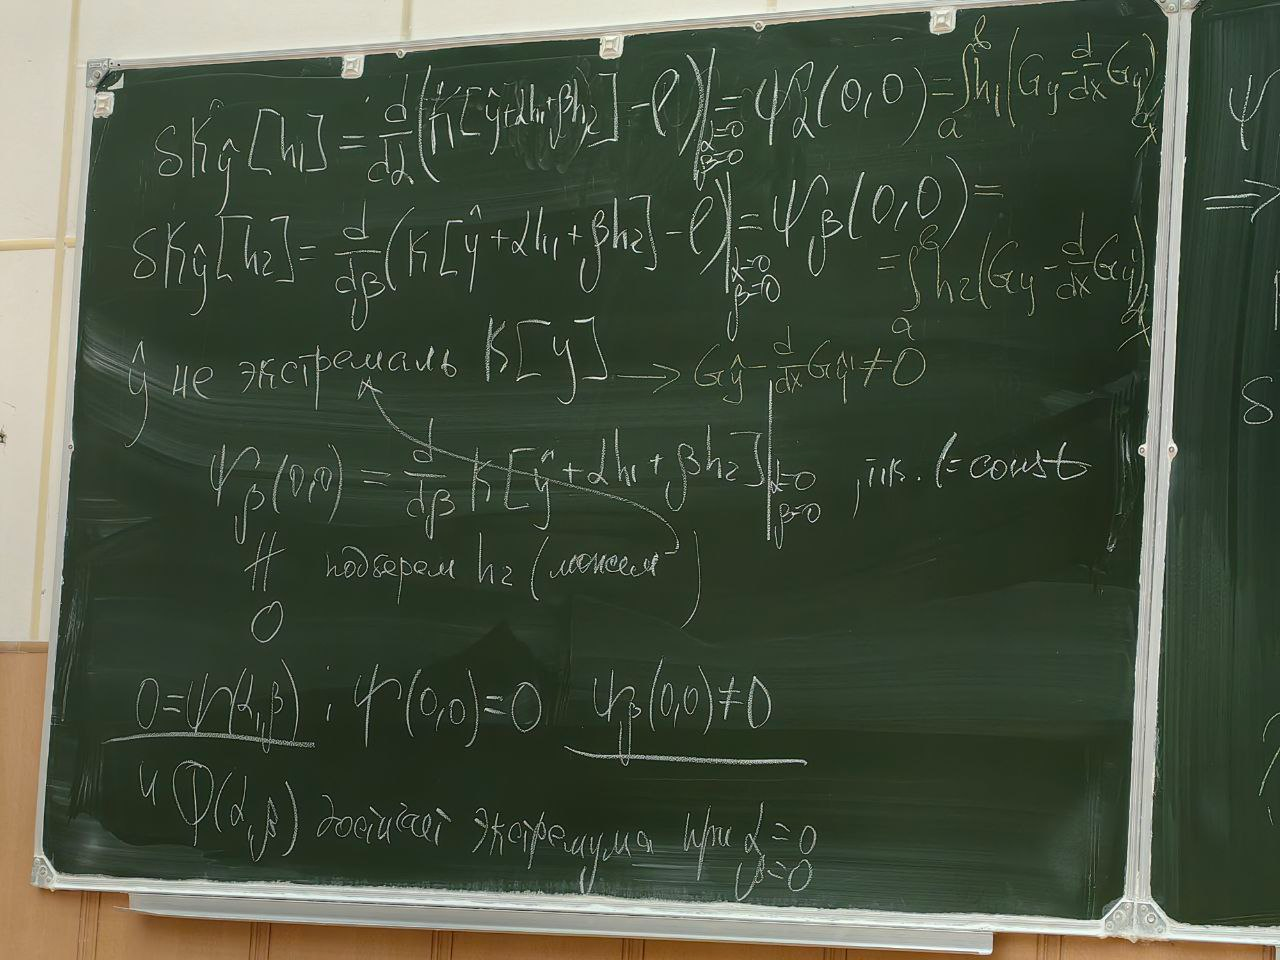 δK_ŷ[h₁] = d/dα (K[ŷ+αh₁+βh₂] - l)|_{α=0, β=0} = ψ_α(0,0) = ∫_a^b h₁(G_y - d/dx G_y')dx
δK_ŷ[h₂] = d/dβ (K[ŷ+αh₁+βh₂] - l)|_{α=0, β=0} = ψ_β(0,0) =
= ∫_a^b h₂(G_y - d/dx G_y')dx
ŷ не экстремаль K[y] → G_ŷ - d/dx G_ŷ' ≠ 0
ψ_β(0,0) = d/dβ K[ŷ+αh₁+βh₂]|_{α=0, β=0}, т.к. l=const
∦ подберем h₂ (можем)
0
0=ψ(α,β) ; ψ(0,0)=0 ψ_β(0,0)≠0
и Φ(α,β) достигает экстремума при α=0
β=0
ψ
⇒
δ